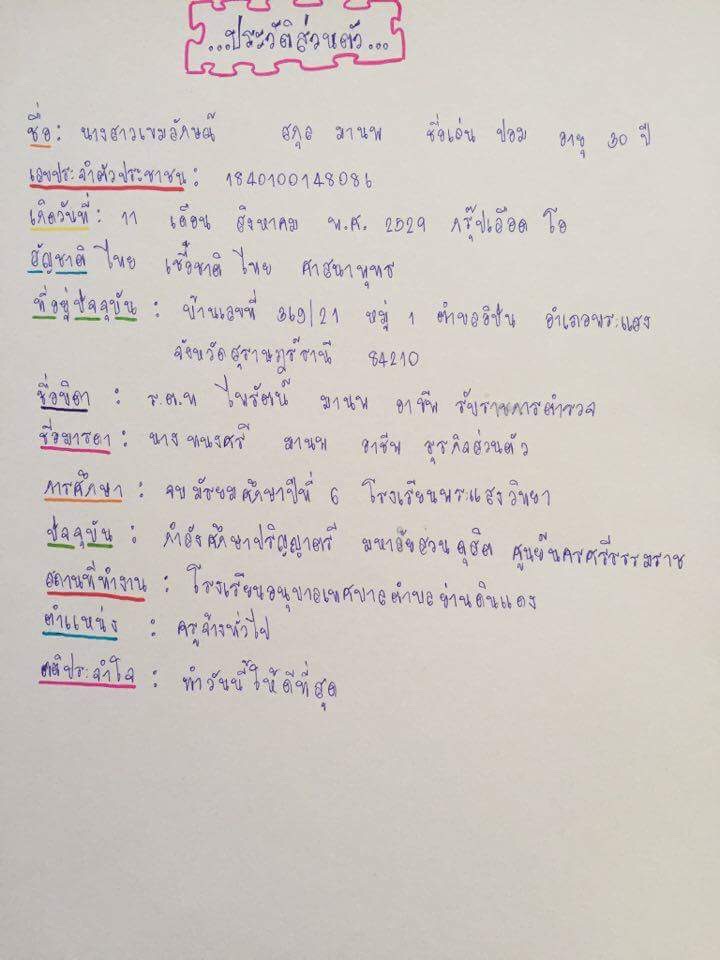 ...ประวัติส่วนตัว...
ชื่อ : นางสาวเขมลักษณ์ สกุล มานพ ชื่อเล่น ปอม อายุ 30 ปี
เลขประจำตัวประชาชน : 1840100148086
เกิดวันที่ : 11 เดือน สิงหาคม พ.ศ. 2529 กรุ๊ปเลือด โอ
สัญชาติ ไทย เชื้อชาติ ไทย ศาสนาพุทธ
ที่อยู่ปัจจุบัน : บ้านเลขที่ 369/21 หมู่ 1 ตำบลอิปัน อำเภอพระแสง
จังหวัดสุราษฎร์ธานี 84210
ชื่อบิดา : ร.ต.ท ไพรัตน์ มานพ อาชีพ รับราชการตำรวจ
ชื่อมารดา : นาง มานพ อาชีพ ธุรกิจส่วนตัว
การศึกษา : จบมัธยมศึกษาปีที่ 6 โรงเรียนพระแสงวิทยา
ปัจจุบัน : กำลังศึกษาปริญญาตรี มหาลัยสวนดุสิต ศูนย์นครศรีธรรมราช
สถานที่ทำงาน : โรงเรียนอนุบาลเทศบาลตำบลย่านดินแดง
ตำแหน่ง : ครูจ้างทั่วไป
คติประจำใจ : ทำวันนี้ให้ดีที่สุด